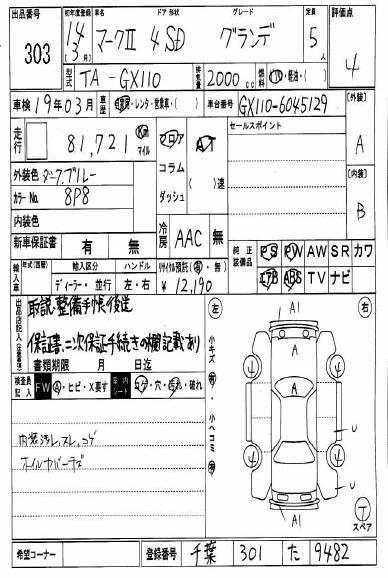 出品番号 303
初年度登録 14年3月 車名 マークⅡ ドア形状 4SD グレード グランデ 定員 5人 評価点 4
型式 TA-GX110 排気量 2000cc 燃料 ・軽油・( )
車検 19年03月 車歴 自家用・レンタ・営業車・( ) 車台番号 GX110-6045129 【外装】 A
走行 81,721 Km マイル フロア コラム ダッシュ AT ( )速 セールスポイント
外装色 ダークブルー
カラーNo. 8P8 【内装】 B
内装色
新車保証書 有 無 冷房 AAC 無 純正装備品 PS PW AW SR カワ
輸入車 年式(西暦) 輸入区分 ディーラー・並行 ハンドル 左・右 リサイクル預託(有・無) ¥12,190 エアB ABS TV ナビ
出品店記入(注意事項)
取説、整備手帳後送
保証書、二次保証手続きの欄記載あり
書類期限 月 日迄
検査員記入 FW ・ヒビ・X要す 室内シート コゲ・穴・汚れ・破れ
内装汚れ、スレ、コゲ
ホイルカバーキズ
左 右
小キズ 有 小ヘコミ 有
A1
A
4 4
U
4 4
U
A
A1
T スペア
希望コーナー 登録番号 千葉 301 た 9482